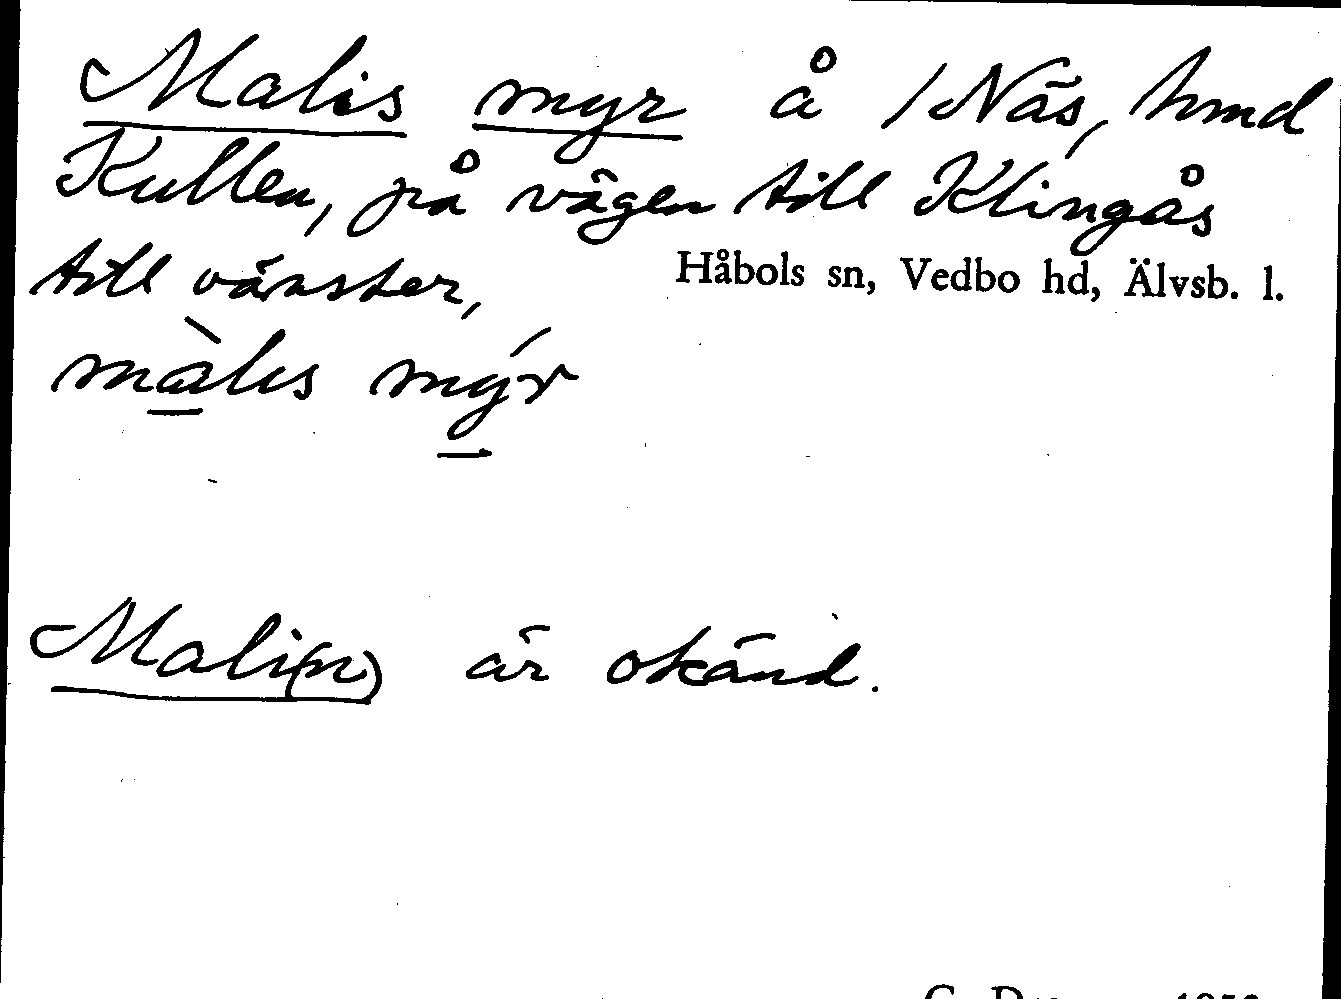 Malis myr å 1 Näs, hmd
Kullen, på vägen till Klingås
till vänster,
Håbols sn, Vedbo hd, Älvsb. l.
màlis mýr
Mali(n) är okänd.